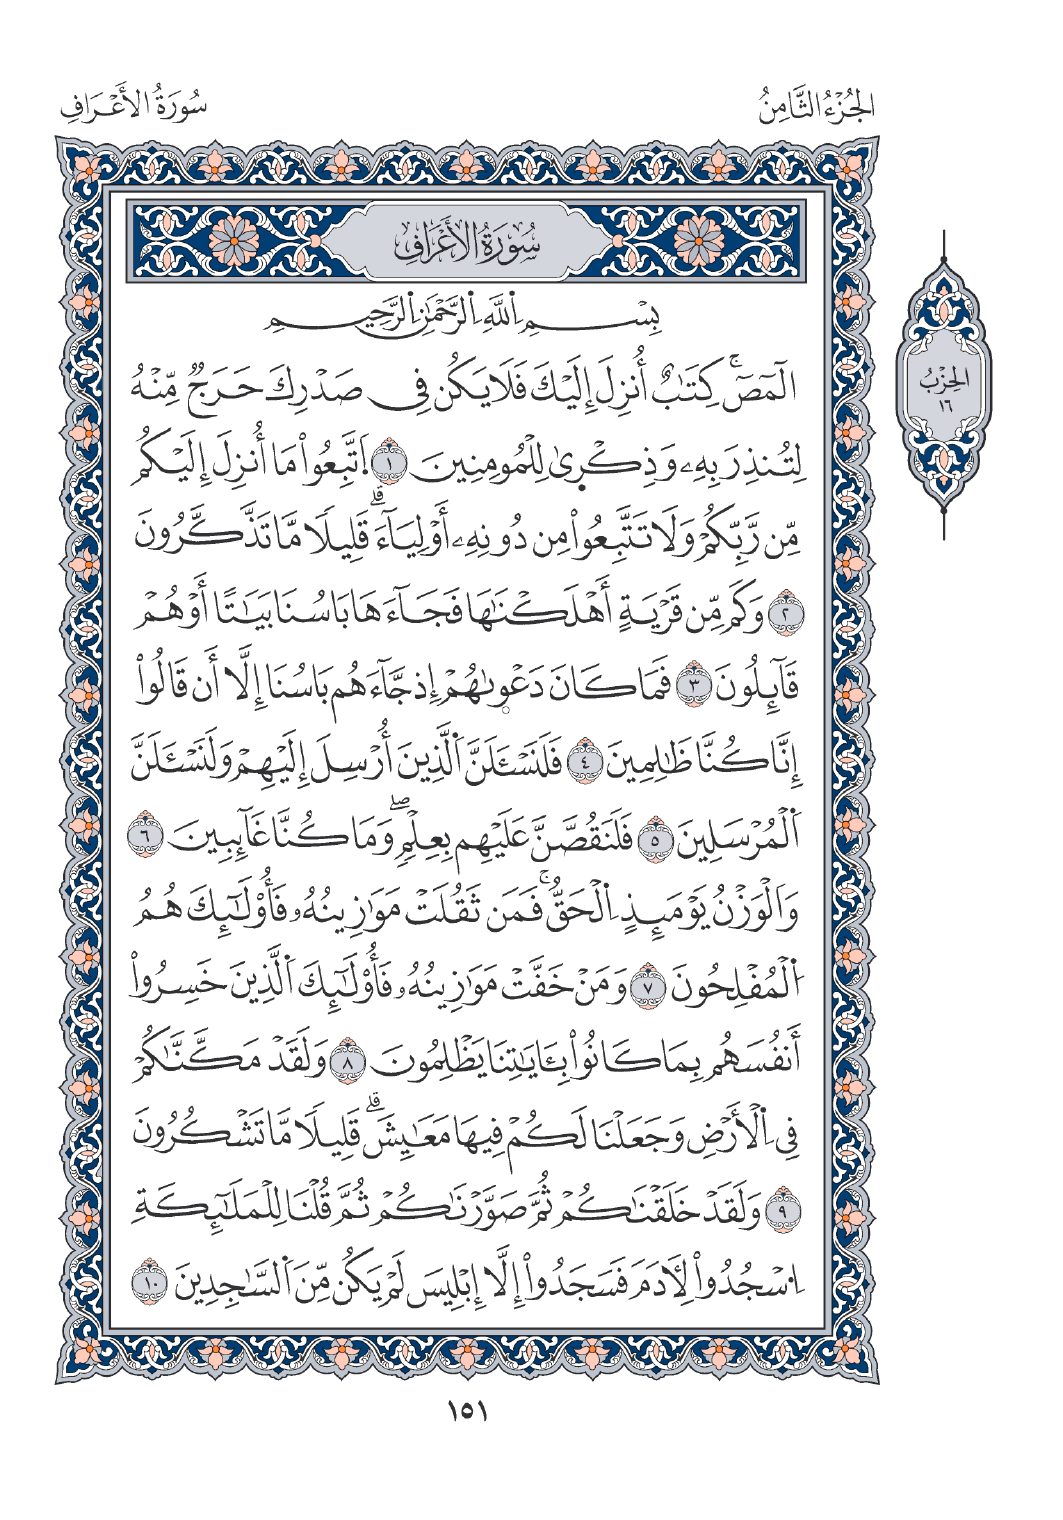 الجُزْءُ الثَّامِنُ
سُورَةُ الأَعْرَافِ
سُورَةُ الأَعْرَافِ
الحِزْبُ
١٦
بِسْمِ اِ۬للَّهِ اِ۬لرَّحْمَٰنِ اِ۬لرَّحِيمِ
أَلَٓمِّٓصَٓۚ كِتَٰبٌ أُنزِلَ إِلَيْكَ فَلَا يَكُن فِي صَدْرِكَ حَرَجٌ مِّنْهُ
لِتُنذِرَ بِهِۦ وَذِكْر۪ىٰ لِلْمُومِنِينَ ١ اَ۪تَّبِعُواْ مَا أُنزِلَ إِلَيْكُم
مِّن رَّبِّكُمْ وَلَا تَتَّبِعُواْ مِن دُونِهِۦ أَوْلِيَآءَۗ قَلِيلًا مَّا تَذَّكَّرُونَ
٢ وَكَم مِّن قَرْيَةٍ أَهْلَكْنَٰهَا فَجَآءَهَا بَاسُنَا بَيَٰتًا أَوْ هُمْ
قَآئِلُونَ ٣ فَمَا كَانَ دَعْو۪ىٰهُمْ إِذ جَّآءَهُم بَاسُنَا إِلَّا أَن قَالُواْ
إِنَّا كُنَّا ظَٰلِمِينَ ٤ فَلَنَسْـَٔلَنَّ اَ۬لَّذِينَ أُرْسِلَ إِلَيْهِمْ وَلَنَسْـَٔلَنَّ
اَ۬لْمُرْسَلِينَ ٥ فَلَنَقُصَّنَّ عَلَيْهِم بِعِلْمٍۖ وَمَا كُنَّا غَآئِبِينَ ٦
وَاَلْوَزْنُ يَوْمَئِذٍ اِ۬لْحَقُّۚ فَمَن ثَقُلَتْ مَوَٰزِينُهُۥ فَأُوْلَٰٓئِكَ هُمُ
اُ۬لْمُفْلِحُونَ ٧ وَمَنْ خَفَّتْ مَوَٰزِينُهُۥ فَأُوْلَٰٓئِكَ اَ۬لَّذِينَ خَسِرُواْ
أَنفُسَهُم بِمَا كَانُواْ بِـَٔايَٰتِنَا يَظْلِمُونَ ٨ وَلَقَدْ مَكَّنَّٰكُمْ
فِي اِ۬لْأَرْضِ وَجَعَلْنَا لَكُمْ فِيهَا مَعَٰيِشَۗ قَلِيلًا مَّا تَشْكُرُونَ
٩ وَلَقَدْ خَلَقْنَٰكُمْ ثُمَّ صَوَّرْنَٰكُمْ ثُمَّ قُلْنَا لِلْمَلَٰٓئِكَةِ
اِ۟سْجُدُواْ لِأٓدَمَ فَسَجَدُواْ إِلَّا إِبْلِيسَ لَمْ يَكُن مِّنَ اَ۬لسَّٰجِدِينَ ١٠
١٥١